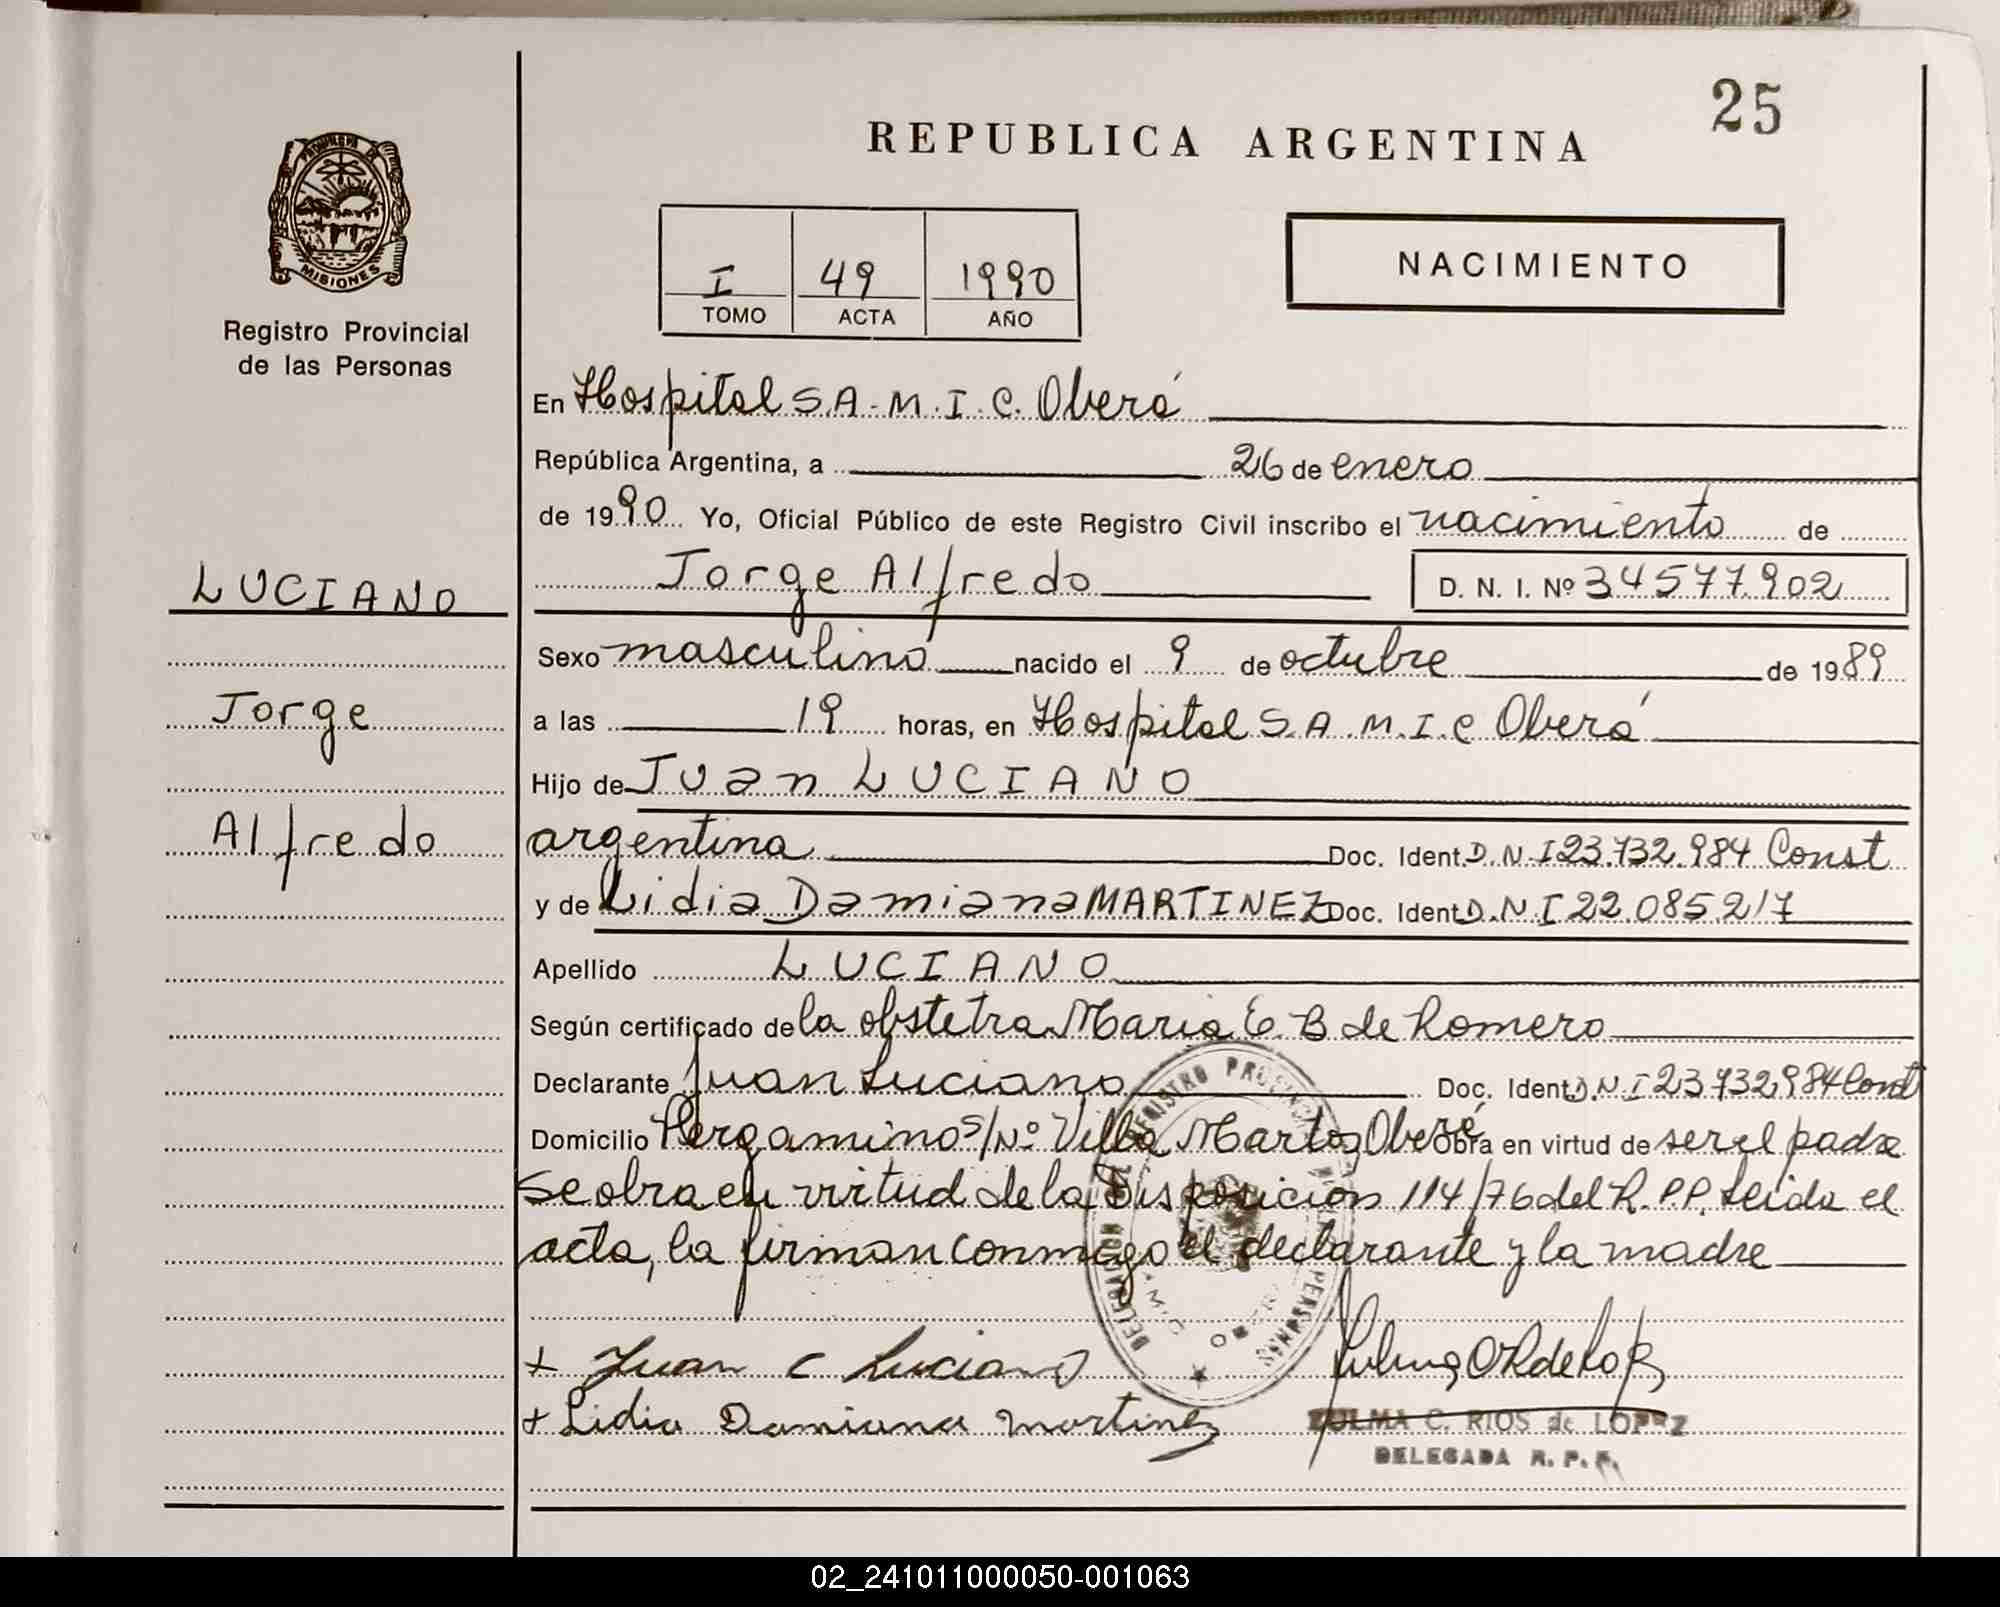 25
REPUBLICA ARGENTINA
PROVINCIA DE
MISIONES
Registro Provincial
de las Personas
I 49 1990
TOMO ACTA AÑO
NACIMIENTO
En Hospital S.A.M.I.C. Oberá
República Argentina, a 26 de enero
de 1990 Yo, Oficial Público de este Registro Civil inscribo el nacimiento de
LUCIANO
Jorge Alfredo D. N. I. Nº 34577902
Sexo masculino nacido el 9 de octubre de 1989
Jorge
a las 19 horas, en Hospital S.A.M.I.C Oberá
Hijo de Juan LUCIANO
Alfredo
argentina Doc. Ident. D.N.I 23.732.984 Const
y de Lidia Damiana MARTINEZ Doc. Ident. D.N.I 22.085.217
Apellido LUCIANO
Según certificado de la obstetra Maria E. B de Romero
Declarante Juan Luciano Doc. Ident. D.N.I 23732984 Const
Domicilio Pergamino s/Nº Villa Martos Oberá Obra en virtud de ser el padre
Se obra en virtud de la Disposición 114/76 del R.P.P. Leida el
acta, la firman conmigo el declarante y la madre
DELEGACION REGISTRO PROVINCIAL PERSONAS
+ Juan C Luciano
+ Lidia Damiana Martinez
ZULMA C. RIOS de LOPEZ
DELEGADA R. P. P.
02_241011000050-001063